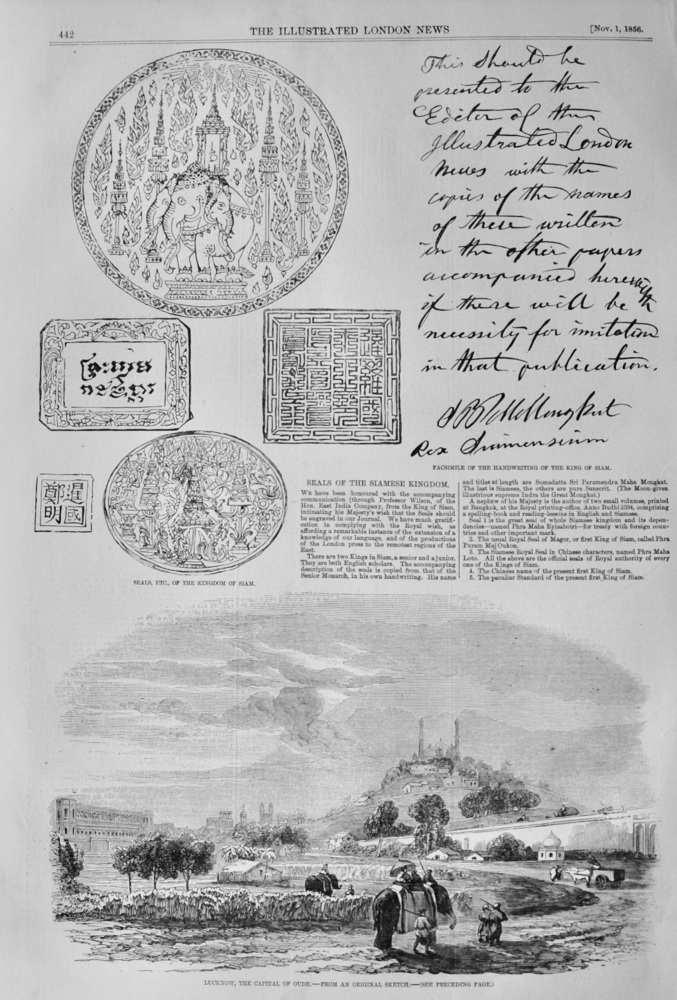 442
THE ILLUSTRATED LONDON NEWS
[Nov. 1, 1856.
This should be
presented to the
Editor of the
Illustrated London
News with the
copies of the names
of these written
in the other papers
accompanied herewith
if there will be
necessity for imitation
in that publication.
Rex Siamensium
FACSIMILE OF THE HANDWRITING OF THE KING OF SIAM.
暹國
鄭明
SEALS, ETC., OF THE KINGDOM OF SIAM.
SEALS OF THE SIAMESE KINGDOM.
We have been honoured with the accompanying
communication (through Professor Wilson, of the
Hon. East India Company, from the King of Siam,
intimating his Majesty's wish that the Seals should
be engraved in our Journal. We have much gratifi-
cation in complying with the Royal wish, as
affording a remarkable instance of the extension of a
knowledge of our language, and of the productions
of the London press to the remotest regions of the
East.
There are two Kings in Siam, a senior and a junior.
They are both English scholars. The accompanying
description of the seals is copied from that of the
Senior Monarch, in his own handwriting. His name
and titles at length are Somadatta Sri Paramendra Maha Mongkut.
The last is Siamese, the others are pure Sanscrit. (The Moon-given
illustrious supreme Indra the Great Mongkut.)
A nephew of his Majesty is the author of two small volumes, printed
at Bangkok, at the Royal printing-office, Anno Budhi 2394, comprising
a spelling-book and reading-lessons in English and Siamese.
Seal 1 is the great seal of whole Siamese kingdom and its depen-
dencies—named Phra Maha—for treaty with foreign coun-
tries and other important mark.
2. The usual Royal Seal of Major, or first King of Siam, called Phra
3. The Siamese Royal Seal in Chinese characters, named Phra Maha
Loto. All the above are the official seals of Royal authority of every
one of the Kings of Siam.
4. The Chinese name of the present first King of Siam.
5. The peculiar Standard of the present first King of Siam.
LUCKNOW, THE CAPITAL OF OUDE.—FROM AN ORIGINAL SKETCH.—(SEE PRECEDING PAGE.)